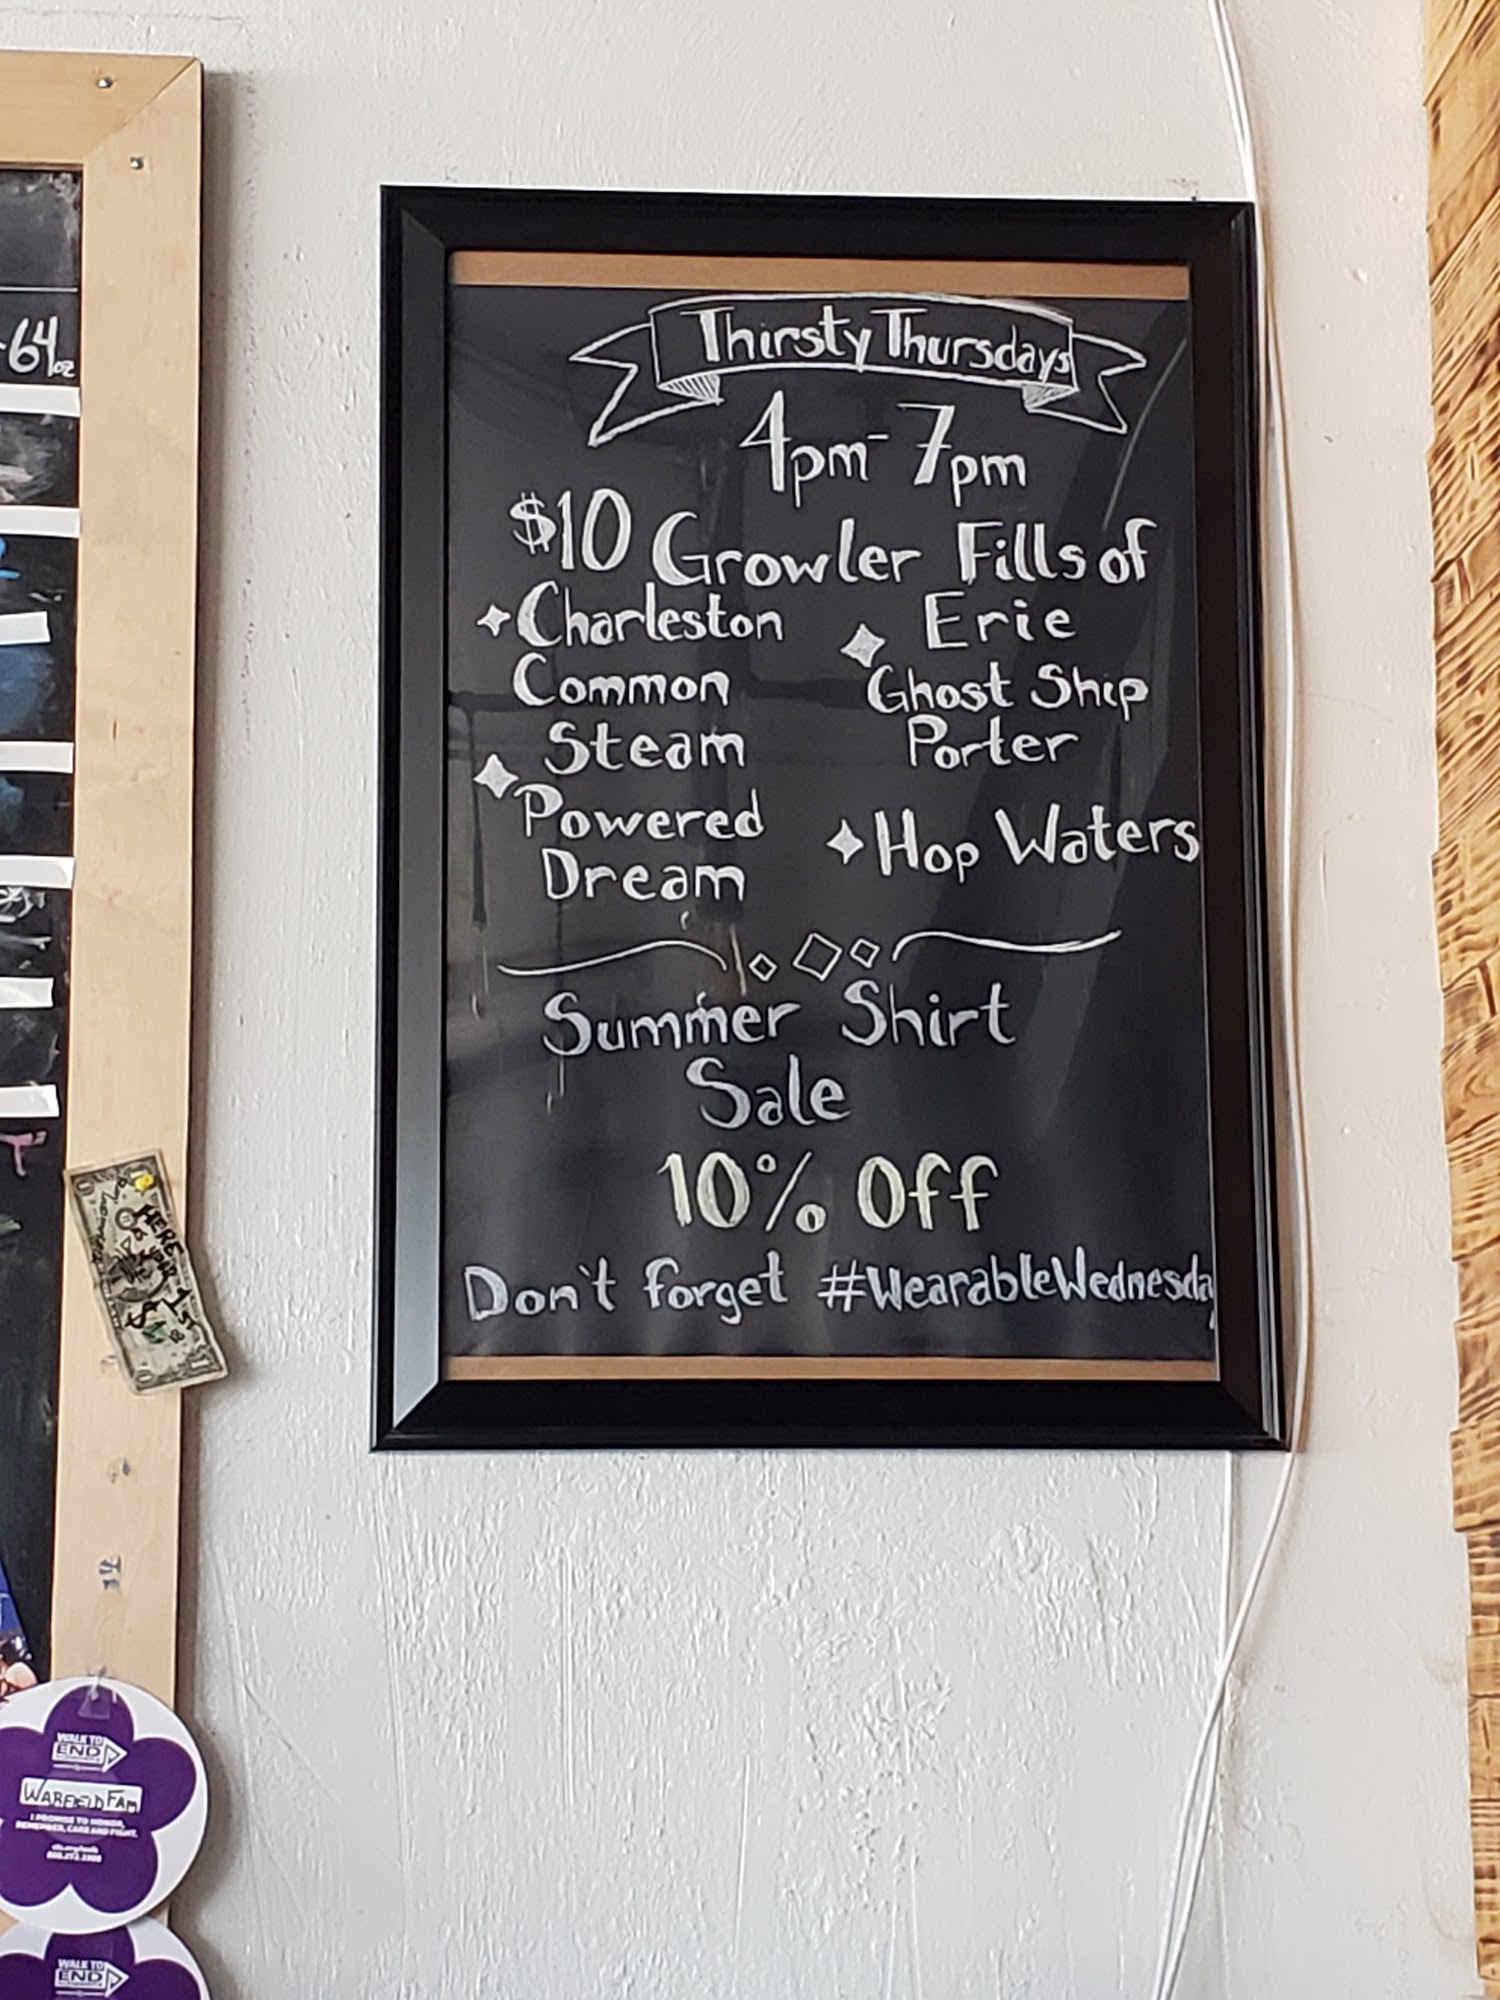 Thirsty Thursdays
4pm - 7pm
$10 Growler Fills of
Charleston
Common
Steam
Powered
Dream
Erie
Ghost Ship
Porter
Hop Waters
Summer Shirt
Sale
10% Off
Don't forget #WearableWednesday
64oz
HERE
IS
WALK TO
END
WARFIELD FAM
I PROMISE TO HONOR,
REMEMBER, CARE AND FIGHT.
800.272.3900
WALK TO
END